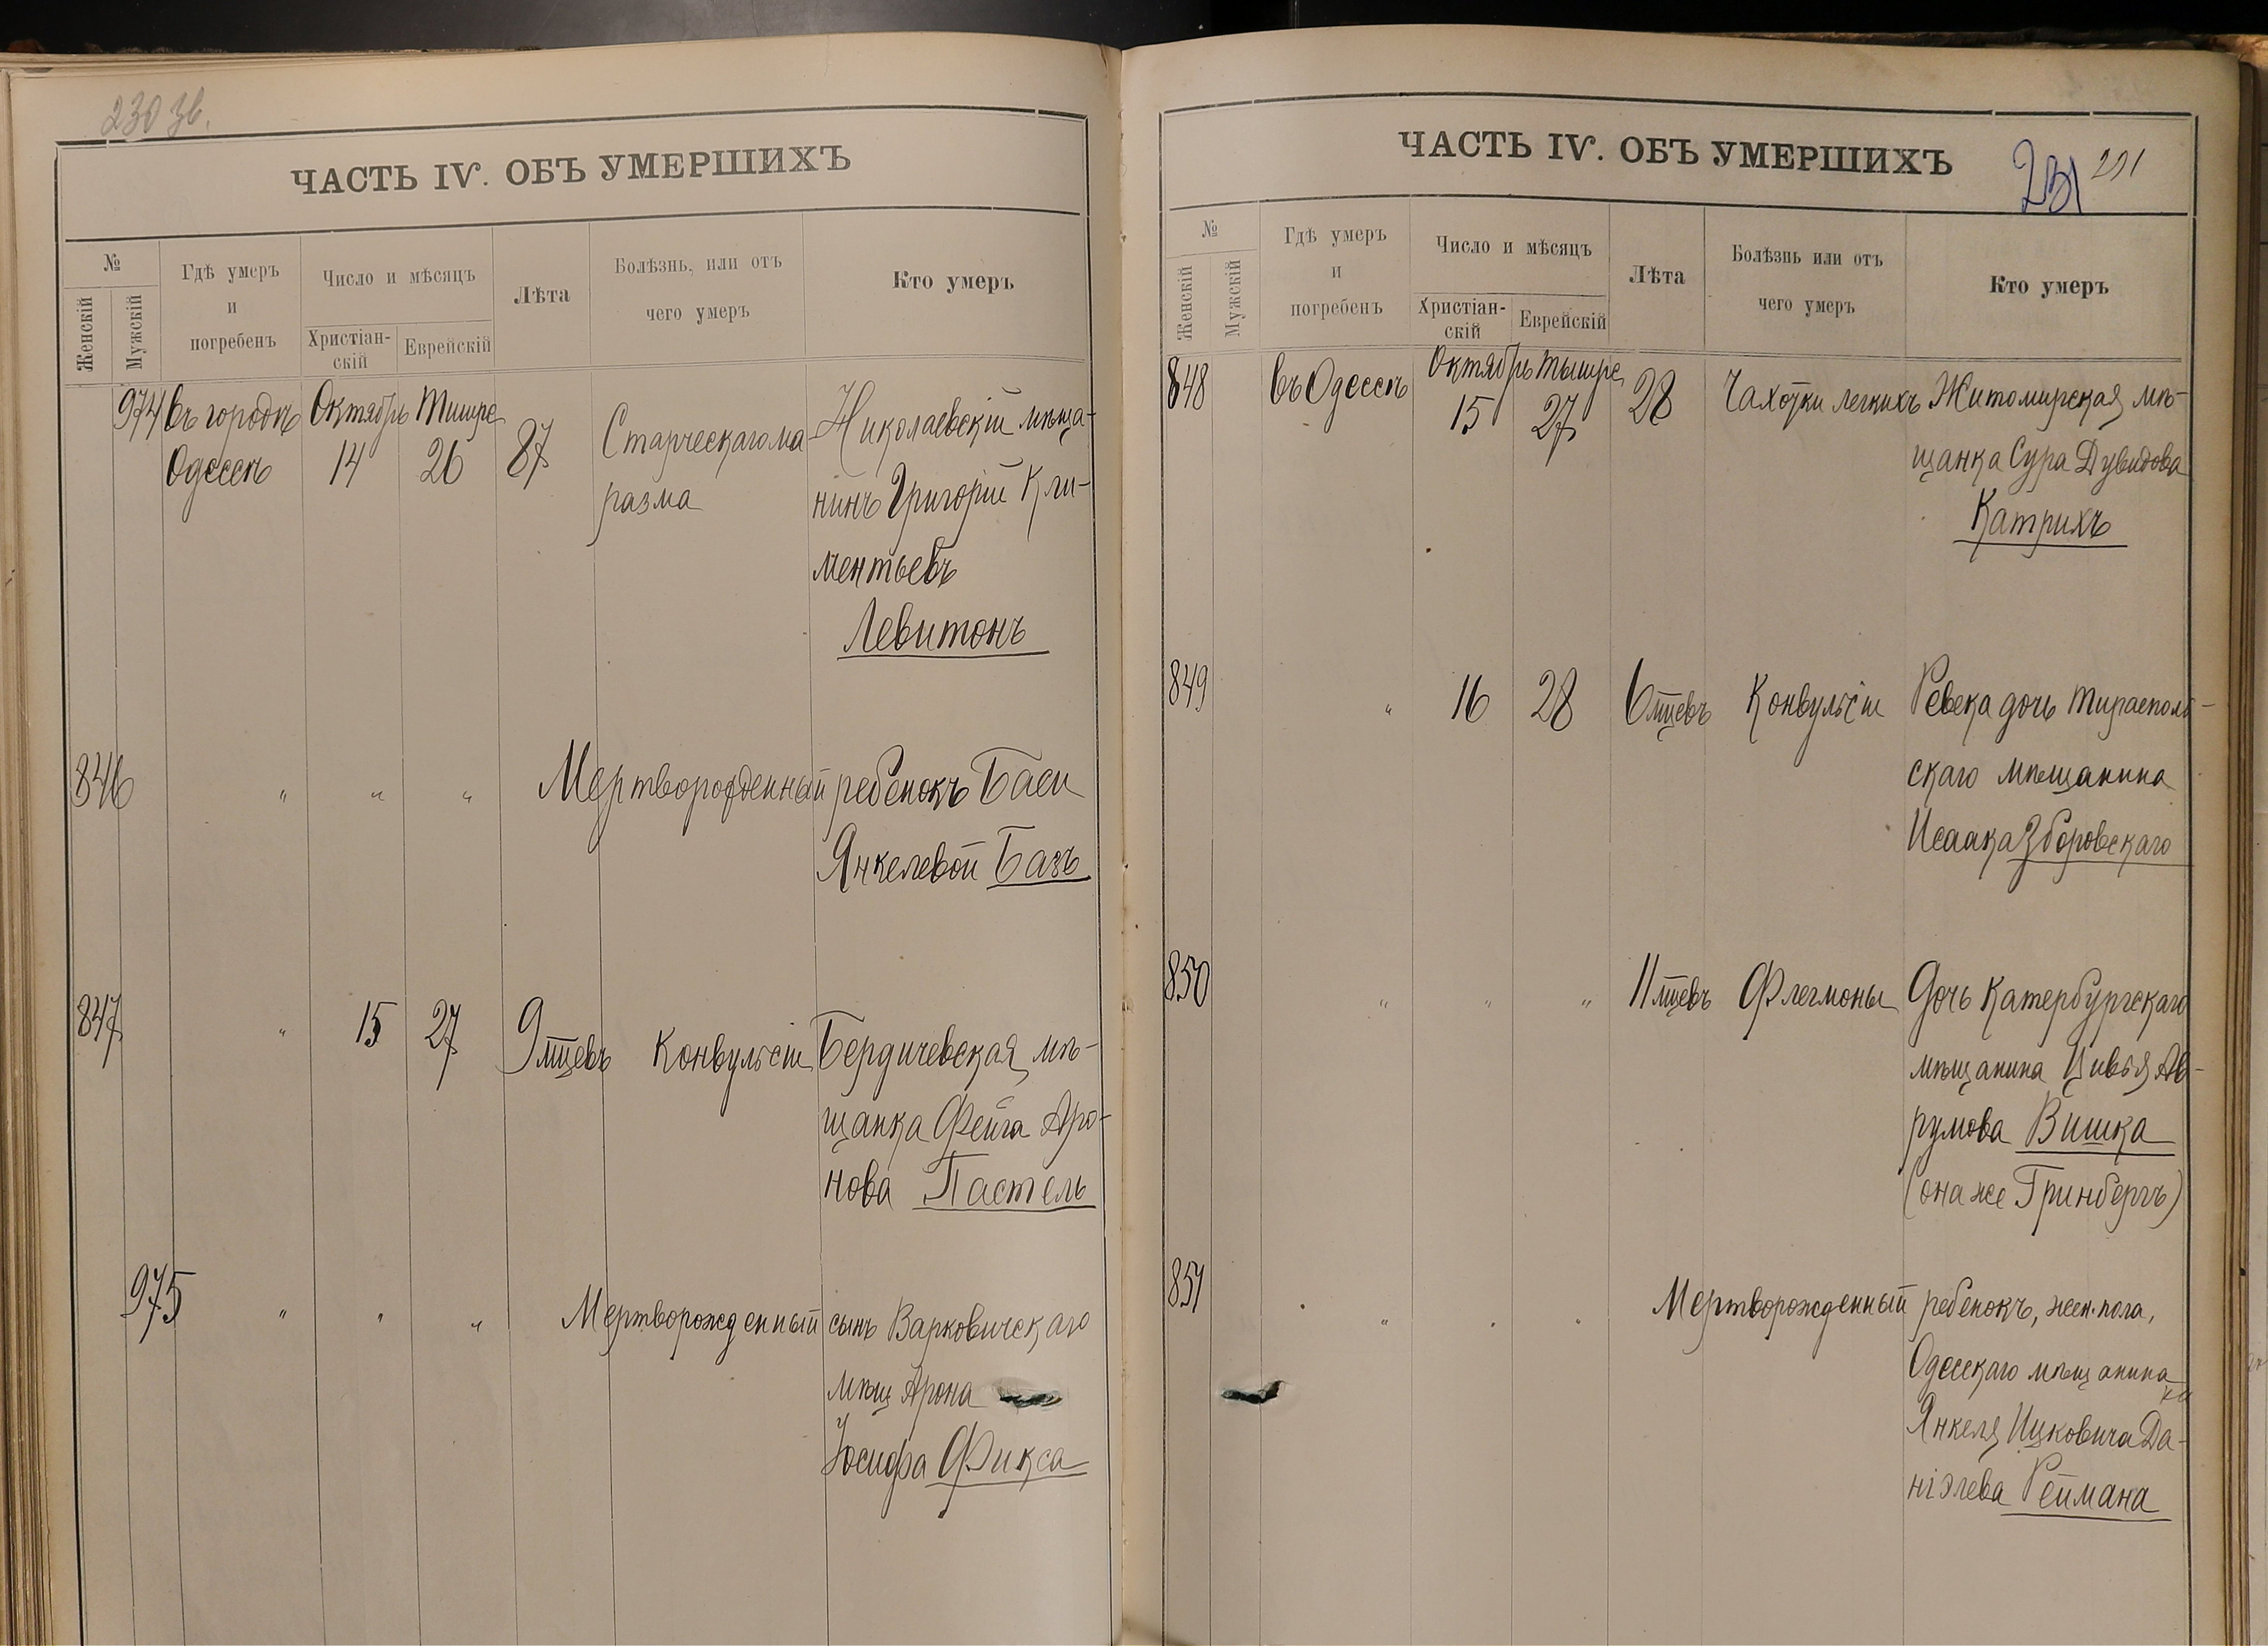 230 зв.
ЧАСТЬ IV. ОБЪ УМЕРШИХЪ
№
Женскій
Мужскій
Гдѣ умеръ
и
погребенъ
Число и мѣсяцъ
Христіан-
скій
Еврейскій
Лѣта
Болѣзнь, или отъ
чего умеръ
Кто умеръ
974 въ городѣ Октябрь Тишре
Одессѣ 14 26 87 Старческаго ма-
разма
Николаевскій мѣща-
нинъ Григорій Кли-
ментьевъ
Левитонъ
846 " " " Мертворожденный ребенокъ Баси
Янкелевой Базъ
847 " 15 27 9 мцевъ Конвульсіи Бердичевская мѣ-
щанка Фейга Аро-
нова Пастель
975 " " " Мертворожденный сынъ Варковичскаго
мѣщ Арона
Іосифа Фикса
ЧАСТЬ IV. ОБЪ УМЕРШИХЪ
231
№
Женскій
Мужскій
Гдѣ умеръ
и
погребенъ
Число и мѣсяцъ
Христіан-
скій
Еврейскій
Лѣта
Болѣзнь или отъ
чего умеръ
Кто умеръ
848 въ Одессѣ Октябрь Тишре
15 27 28 Чахотки легкихъ Житомирская мѣ-
щанка Сура Дувидова
Катрихъ
849 " 16 28 6 мцевъ Конвульсіи Ревека дочь Тирасполь-
скаго мѣщанина
Исаака Зборовскаго
850 " " " 11 мцевъ Флегмоны Дочь Катербургскаго
мѣщанина Цивья Ав-
румова Вишка
(она же Гринбергъ)
851 " " " Мертворожденный ребенокъ, жен. пола,
Одесскаго мѣщанина
Янкеля Ицковича Да-
ніэлева Реймана